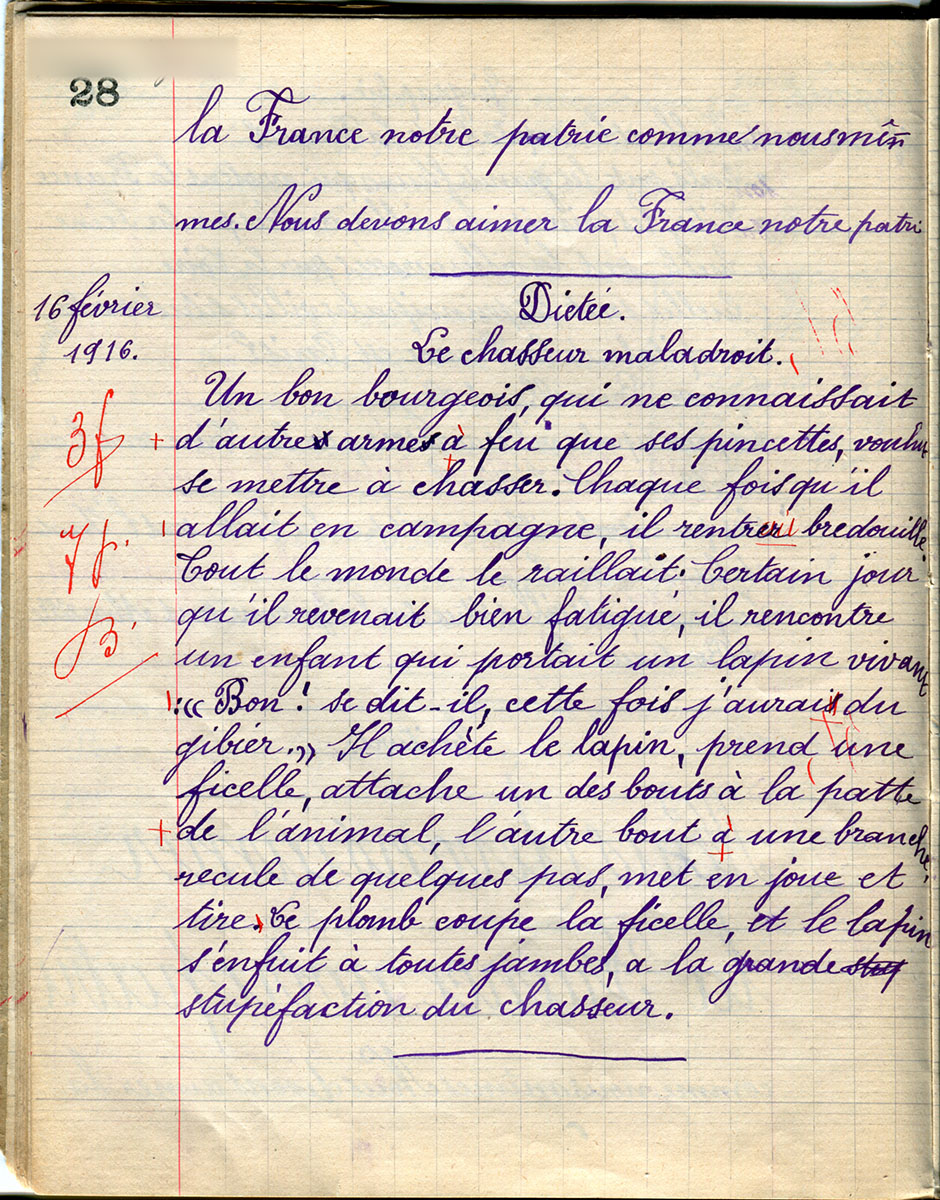 28
la France notre patrie comme nous mêm
mes. Nous devons aimer la France notre patri
16 février
1916.
Dictée.
Le chasseur maladroit.
Un bon bourgeois, qui ne connaissait
3f
d'autres armes à feu que ses pincettes, voulut
se mettre à chasser. Chaque fois qu'il
allait en campagne, il rentrer bredouille.
Tout le monde le raillait. Certain jour
qu'il revenait bien fatigué, il rencontre
B
un enfant qui portait un lapin vivant
:« Bon ! se dit-il, cette fois j'aurais du
gibier. » Il achète le lapin, prend une
ficelle, attache un des bouts à la patte
de l'animal, l'autre bout à une branche,
recule de quelques pas, met en joue et
tire. Le plomb coupe la ficelle, et le lapin
s'enfuit à toutes jambes, a la grande stup
stupéfaction du chasseur.